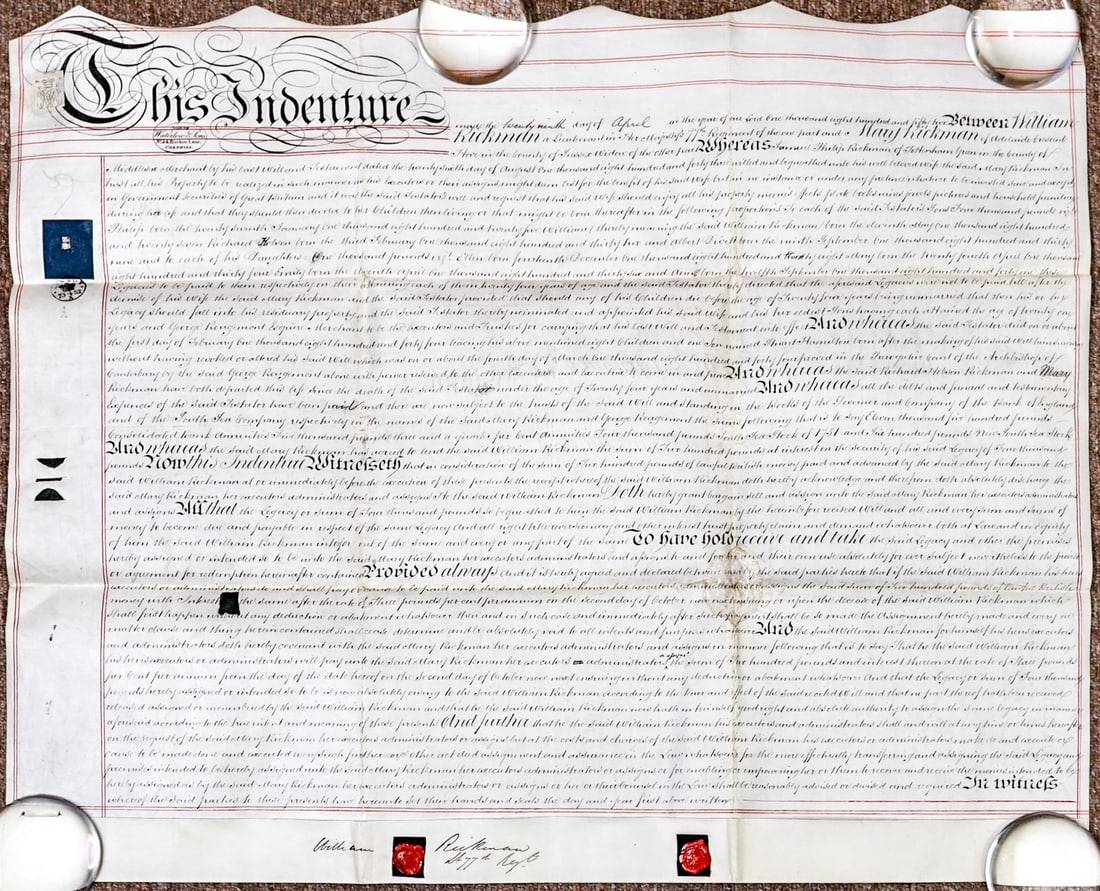 This Indenture made the twenty ninth day of April in the year of our Lord One thousand eight hundred and fifty two Between William
Rickman a Lieutenant in Her Majestys 77th Regiment of the one part and Mary Rickman of Adelaide Crescent
Hove in the County of Sussex Widow of the other part Whereas Samuel Philip Rickman of Tottenham Green in the County of
Middlesex Merchant by his last Will and Testament dated the twenty sixth day of August One thousand eight hundred and forty three willed and bequeathed unto his well beloved Wife the said Mary Rickman In
trust all his Property to be realized in such manner as his Executors or their assigns might deem best for the benefit of his said Wife but in no instance or under any pretence whatever to be invested save and except
in Government Securities of Great Britain and it was the said Testators will and request that his said Wife should enjoy all his property monies effects plate books wines jewels pictures and household furniture
during her life and that they should then devolve to her Children then living or that might be born thereafter in the following proportions To each of the said Testators Sons Four thousand pounds viz
Philip born the twenty seventh January One thousand eight hundred and twenty five William (thereby meaning the said William Rickman) born the eleventh May One thousand eight hundred
and twenty seven Richard Hobson born the third February One thousand eight hundred and thirty two and Albert Driett born the ninth September One thousand eight hundred and thirty
nine and to each of his Daughters One thousand pounds viz Ellen born fourteenth December One thousand eight hundred and twenty eight Mary born the twenty fourth April One thousand
eight hundred and thirty four Emily born the ninth April One thousand eight hundred and thirty six and Ann born the twelfth September One thousand eight hundred and forty one these
Legacies to be paid to them respectively on their attaining each of them twenty four years of age and the said Testator thereby directed that the aforesaid Legacies were not to be paid till after the
demise of his Wife the said Mary Rickman and the said Testator provided that should any of his Children die before the age of Twenty four years being unmarried that then his or her
Legacy should fall into his residuary property and the said Testator thereby nominated and appointed his said Wife and his two eldest Sons having each attained the age of twenty one
years and George Rougemont Esquire Merchant to be the Executors and Trustees for carrying that his last Will and Testament into effect And whereas the said Testator died on or about
the first day of February One thousand eight hundred and forty four leaving his above mentioned eight Children and one Son named Stuart Hamilton born after the making of his said Will him surviving
without having revoked or altered his said Will which was on or about the fourth day of March One thousand eight hundred and forty four proved in the Prerogative Court of the Archbishop of
Canterbury by the said George Rougemont alone with power reserved to the other Executors and Executrix to come in and prove And whereas the said Richard Hobson Rickman and Mary
Rickman have both departed this life since the death of the said Testator under the age of Twenty four years and unmarried And whereas all the debts and funeral and testamentary
Expences of the said Testator have been paid and there are now subject to the trusts of the said Will and standing in the books of the Governor and Company of the Bank of England
and of the South Sea Company respectively in the names of the said Mary Rickman and George Rougemont the sums following that is to say Eleven thousand five hundred pounds
Consolidated Bank Annuities Five thousand pounds three and a quarter per Cent Annuities Four thousand pounds South Sea Stock of 1751 and Five hundred pounds New South Sea Stock
And whereas the said Mary Rickman has agreed to lend the said William Rickman the sum of Two hundred pounds at interest on the security of his said Legacy of Four thousand
pounds Now this Indenture Witnesseth that in consideration of the sum of Two hundred pounds of lawful British money paid and advanced by the said Mary Rickman to the
said William Rickman at or immediately before the execution of these presents the receipt whereof the said William Rickman doth hereby acknowledge and therefrom doth absolutely discharge the
said Mary Rickman her executors administrators and assigns He the said William Rickman Doth hereby grant bargain sell and assign unto the said Mary Rickman her executors administrators
and assigns All that the Legacy or sum of Four thousand pounds so bequeathed to him the said William Rickman by the hereinbefore recited Will and all and every sum and sums of
money to become due and payable in respect of the said Legacy And all right title reversionary and other interest trust property claim and demand whatsoever both at Law and in Equity
of him the said William Rickman into for and out of the same and every or any part of the same To have hold receive and take the said Legacy and other the premises
hereby assigned or intended so to be unto the said Mary Rickman her executors administrators and assigns to and for her and their own use absolutely for ever Subject nevertheless to the proviso
or agreement for redemption hereinafter contained Provided always and it is hereby agreed and declared between and by the said parties hereto that if the said William Rickman his
executors or administrators do and shall pay or cause to be paid unto the said Mary Rickman her executors administrators or assigns the said sum of Two hundred pounds of lawful British
money with Interest for the same after the rate of Three pounds per cent per annum on the second day of October now next ensuing or upon the decease of the said William Rickman which
shall first happen without any deduction or abatement whatsoever then and in such case and immediately after such payment shall be so made the Assignment hereby made and every
matter clause and thing herein contained shall cease determine and be absolutely void to all intents and purposes whatsoever And the said William Rickman for himself his heirs executors
and administrators doth hereby covenant with the said Mary Rickman her executors administrators and assigns in manner following that is to say That he the said William Rickman
his heirs executors or administrators will pay unto the said Mary Rickman her executors administrators or assigns the sum of Two hundred pounds and interest thereon at the rate of Three pounds
per Cent per annum from the day of the date hereof on the second day of October now next ensuing without any deduction or abatement whatsoever And that the Legacy or sum of Four thousand
pounds hereby assigned or intended so to be is now absolutely owing to the said William Rickman according to the tenor and effect of the said recited Will and that no part thereof hath been received
released assigned or incumbered by the said William Rickman and that he the said William Rickman now hath in himself good right and absolute authority to assign the same legacy in manner
aforesaid according to the true intent and meaning of these presents And further that he the said William Rickman his executors and administrators shall and will at any time or times hereafter
on the request of the said Mary Rickman her executors administrators or assigns but at the costs and charges of the said William Rickman his executors or administrators make do and execute or
cause to be made done and executed every such further or other act deed assignment and assurance in the Law whatsoever for the more effectually transferring and assigning the said Legacy and
premises intended to be hereby assigned unto the said Mary Rickman her executors administrators or assigns or for enabling or impowering her or them to recover and receive the monies intended to be
hereby assigned as by the said Mary Rickman her executors administrators or assigns or her or their Counsel in the Law shall be reasonably advised or devised and required In witness
whereof the said parties to these presents have hereunto set their hands and seals the day and year first above written
William Rickman
Lt 77th Regt